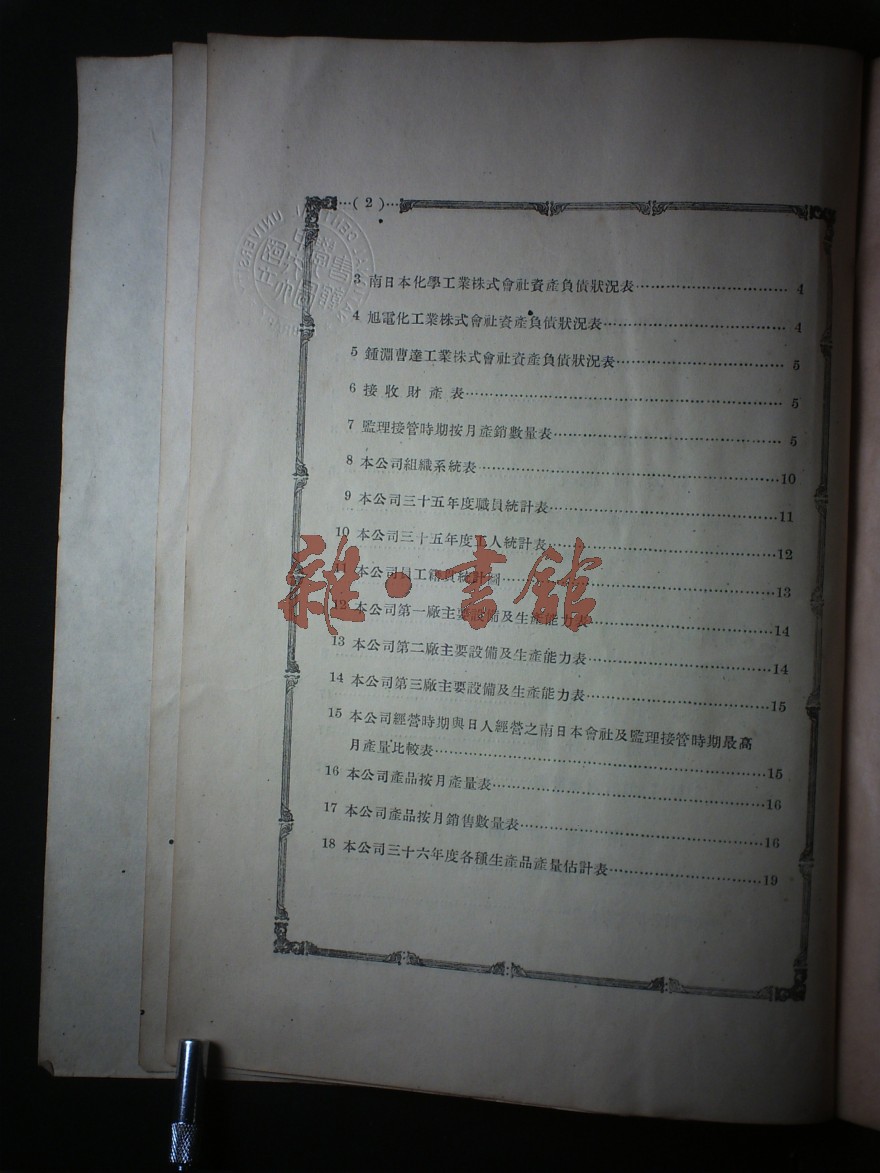 (2)
3 南日本化學工業株式會社資產負債狀況表 4
4 旭電化工業株式會社資產負債狀況表 4
5 鍾淵曹達工業株式會社資產負債狀況表 5
6 接收財產表 5
7 監理接管時期按月產銷數量表 5
8 本公司組織系統表 10
9 本公司三十五年度職員統計表 11
10 本公司三十五年度工人統計表 12
11 本公司員工薪資統計圖 13
12 本公司第一廠主要設備及生產能力表 14
13 本公司第二廠主要設備及生產能力表 14
14 本公司第三廠主要設備及生產能力表 15
15 本公司經營時期與日人經營之南日本會社及監理接管時期最高
月產量比較表 15
16 本公司產品按月產量表 16
17 本公司產品按月銷售數量表 16
18 本公司三十六年度各種生產品產量估計表 19
雜·書館